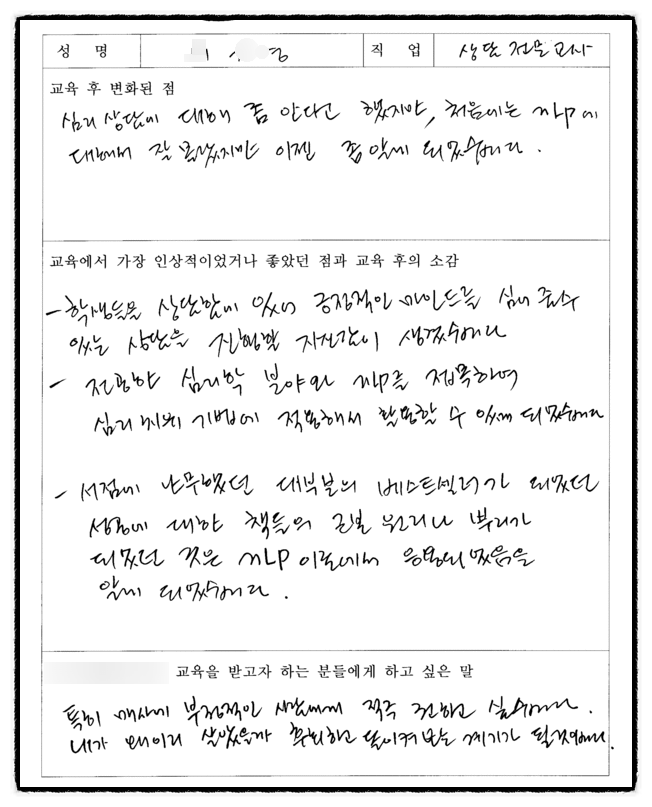 성 명
직 업 상담 전문교사
교육 후 변화된 점
심리 상담에 대해 좀 안다고 했지만, 처음에는 NLP에
대해서 잘 몰랐지만 이젠 좀 알게 되었습니다.
교육에서 가장 인상적이었거나 좋았던 점과 교육 후의 소감
- 학생들을 상담함에 있어 긍정적인 마인드를 심어 줄수
있는 상담을 진행할 자신감이 생겼습니다
- 전공한 심리학 분야와 NLP를 접목하여
심리치료 기법에 적용해서 활용할 수 있게 되었습니다
- 서점에 난무했던 대부분의 베스트셀러가 되었던
성공에 대한 책들의 근본 원리나 뿌리가
되었던 것은 NLP 이론에서 응용되었음을
알게 되었습니다.
교육을 받고자 하는 분들에게 하고 싶은 말
특히 매사에 부정적인 사람에게 적극 전하고 싶습니다.
내가 왜이리 살았을까 후회하고 돌이켜 보는 계기가 될것입니다.